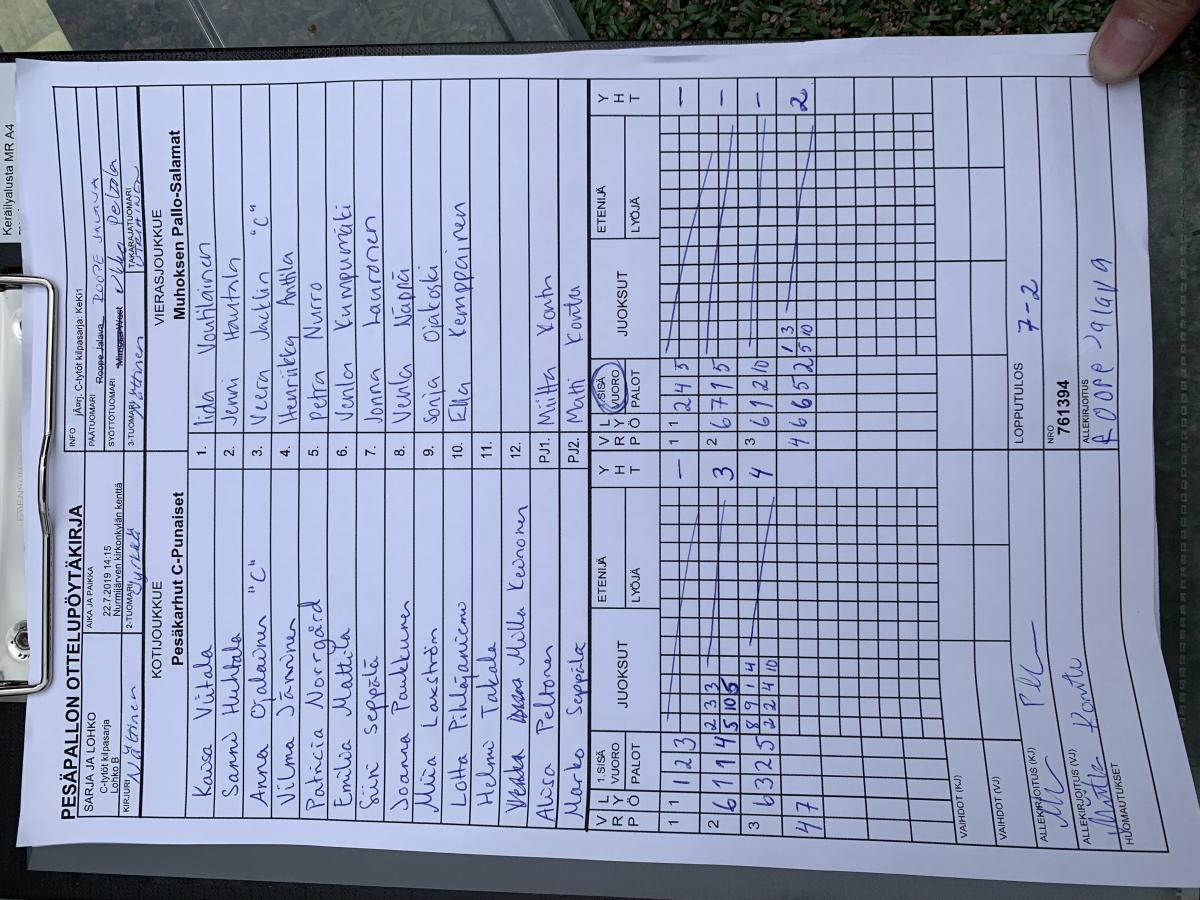 Keräilyalusta MR A4
PESÄPALLON OTTELUPÖYTÄKIRJA
SARJA JA LOHKO
C-tytöt kilpasarja
Lohko B
AIKA JA PAIKKA
22.7.2019 14:15
Nurmijärven kirkonkylän kenttä
INFO jÄ¤rj. C-tytöt kilpasarja: KeKi1
PÄÄTUOMARI Roope Jalava ROOPE JALAVA
SYÖTTÖTUOMARI Ilkka Peltola
KIRJURI Näykinen
2-TUOMARI Jyrkkä
3-TUOMARI
TAKARAJATUOMARI
KOTIJOUKKUE
Pesäkarhut C-Punaiset
VIERASJOUKKUE
Muhoksen Pallo-Salamat
Kaisa Viitala 1. Iida Voutilainen
Sanni Huhtala 2. Jenni Hautala
Anna Ojalainen "C" 3. Veera Jacklin "C"
Vilma Jänninen 4. Henriikka Anttila
Patricia Norrgård 5. Petra Nurro
Emilia Mattila 6. Venla Kumpumäki
Siiri Seppälä 7. Jonna Lauronen
Joanna Paukkunen 8. Venla Näppä
Miia Laxström 9. Sonja Ojakoski
Lotta Pihlajaniemi 10. Ella Kemppainen
Helmi Takala 11.
Milla Keinonen 12.
Alisa Peltonen PJ1. Miitta Kontu
Marko Seppälä PJ2. Matti Kontu
VRP LYÖ 1.SISÄ VUORO PALOT JUOKSUT ETENIJÄ LYÖJÄ YHT VRP LYÖ 1.SISÄ VUORO PALOT JUOKSUT ETENIJÄ LYÖJÄ YHT
1 1 1 2 3 — 1 1 2 4 5 —
2 3 3
2 6 1 1 4 5 10 5 3 2 6 7 1 5 —
8 9 1 4
3 6 3 2 5 2 2 4 10 4 3 6 1 2 10 —
1 3
4 7 4 6 6 5 2 5 10 2
VAIHDOT (KJ)
VAIHDOT (VJ)
ALLEKIRJOITUS (KJ)
LOPPUTULOS 7-2
ALLEKIRJOITUS (VJ) Kontu
NRO
761394
HUOMAUTUKSET
ALLEKIRJOITUS